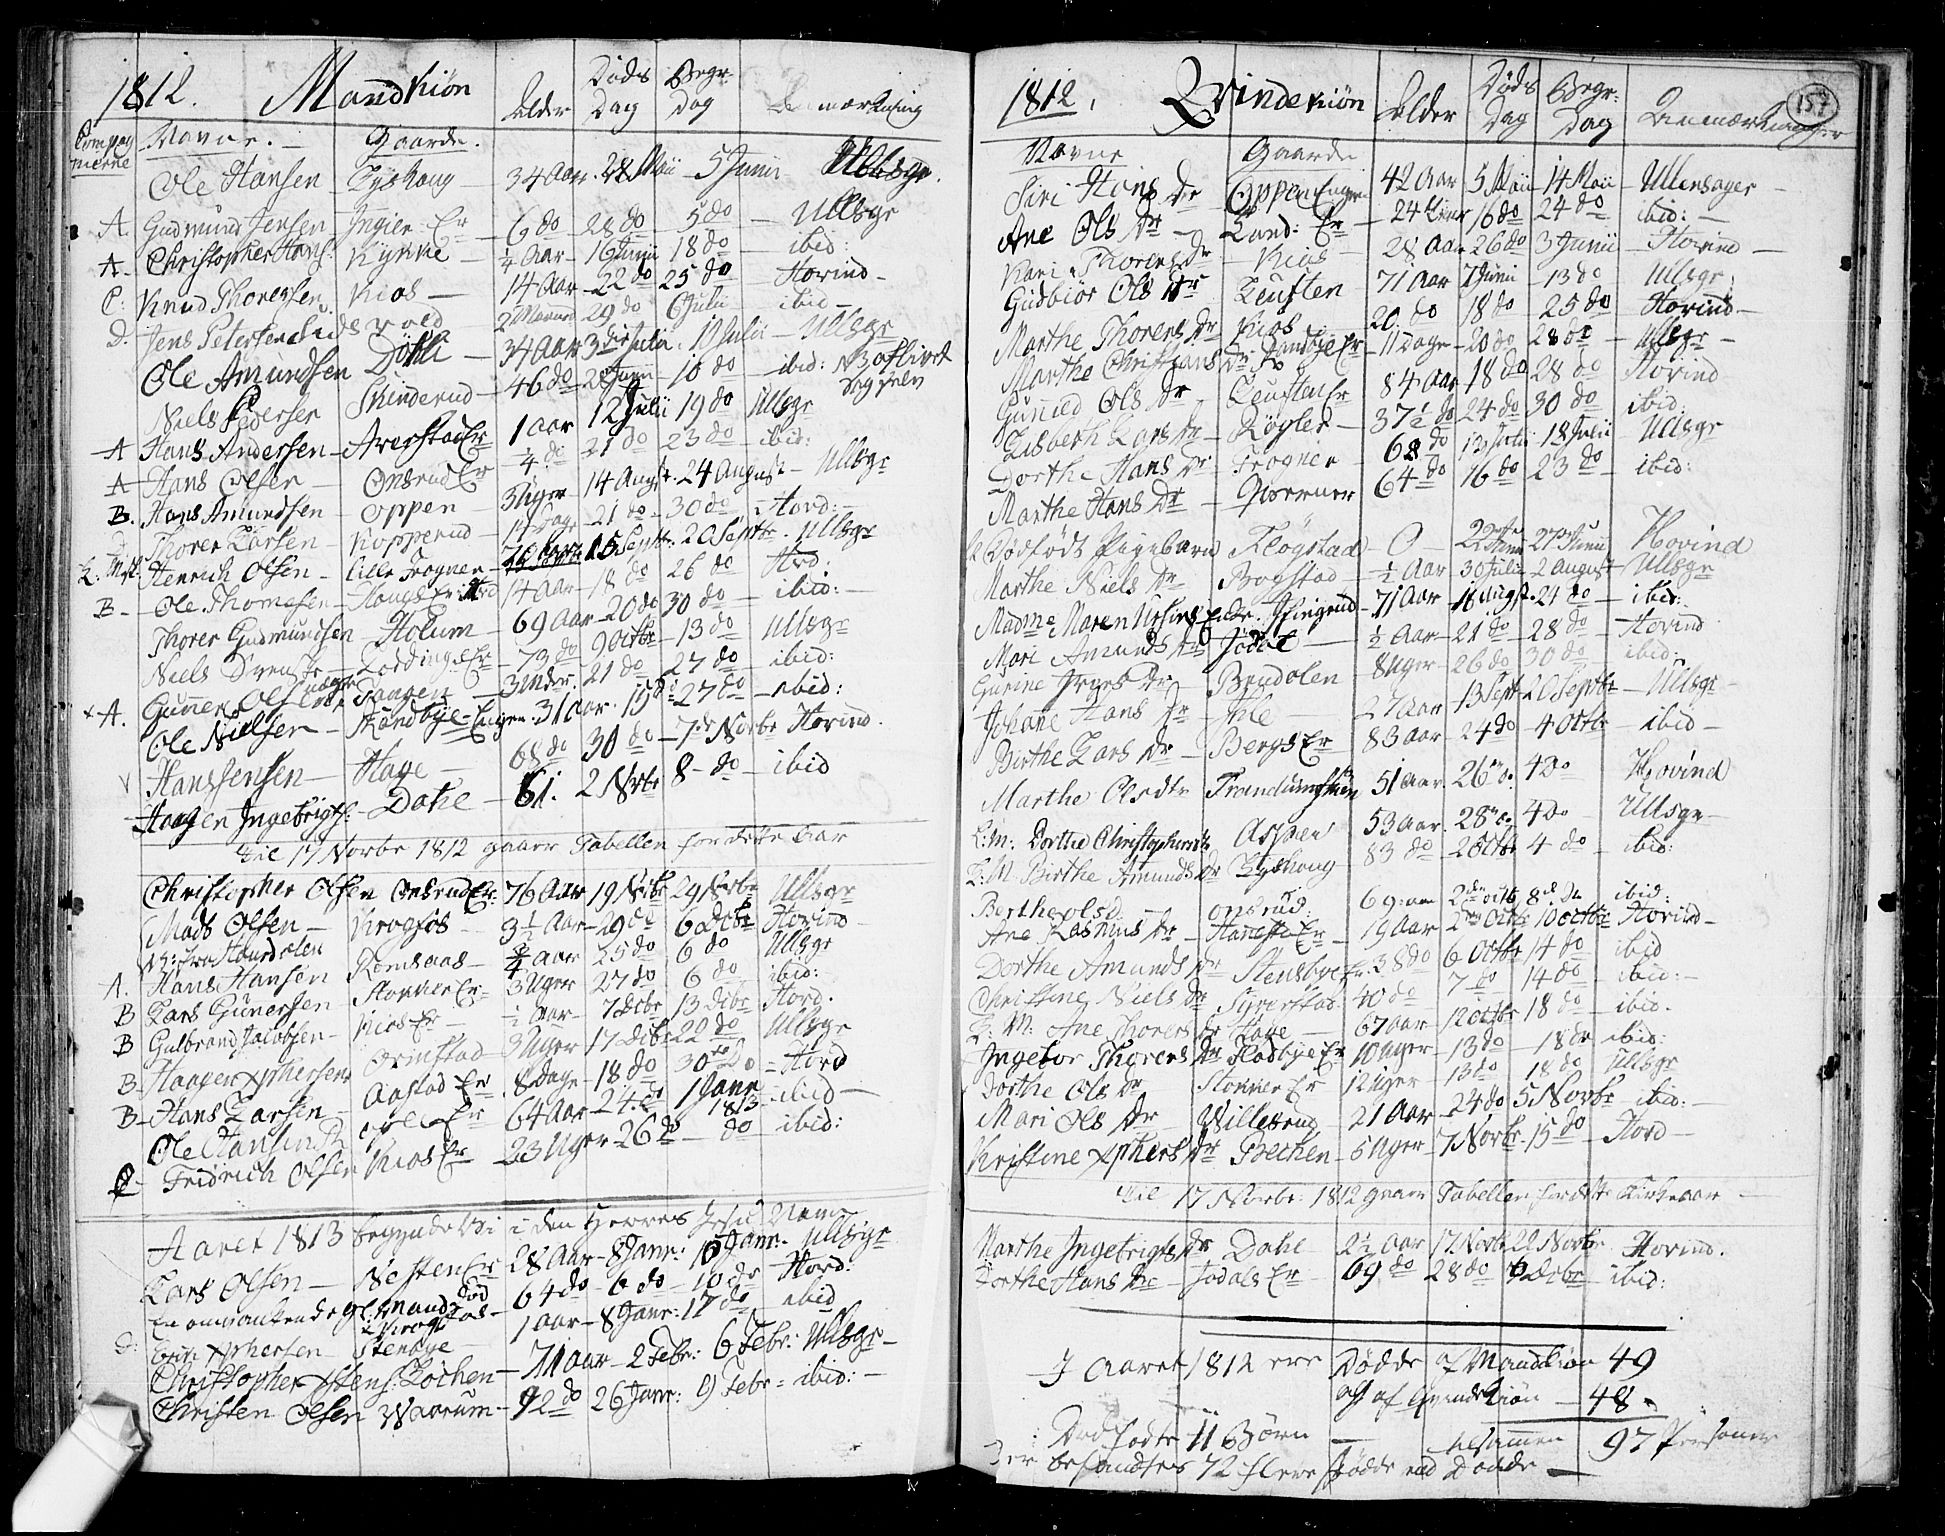 1812. Mandkiøn Alder Døds Dag Begr. Dag Anmærkning
Compagnierne Navne. Gaarde.
Ole Hansen Lyshaug 34 Aar 28 Maii 5 Junii Ullsgr.
A. Gudmund Jensen Ingier Er 6 do 28 do 5 do Ullsgr
A. Christopher Hans. Kykke 1/4 Aar 16 Junii 18 do ibid:
C: Knud Thoresen Kios 14 Aar 22 do 25 do Hovind
D. Jens Petersen Eidsvold 29 do 6 Julii ibid
Ole Amundsen Dohli 34 Aar 3die Julii 10 Julii Ullsgr
Niels Pedersen Skinderud 46 do 28 Junii 10 do ibid: NB aflivet sig selv
A Hans Andersen Averstad Er 1 Aar 12 Julii 19 do Ullsgr
A Hans Olsen Onsrud Er 1/4 do 21 do 23 do ibid:
B. Hans Amundsen Oppen 3 Uger 14 Augst. 24 August Ullsgr
Thorer Larsen Kopperud 14 Dage 21 do 30 do Hovd:
L. Mst. Henrich Olsen Lille Frogner 15 Septr. 20 Septr. Ullsgr
B Ole Thomesen Haugs Er 14 Aar 18 do 26 do Hovd.
Thorer Gudmundsen Holum 69 Aar 20 do 30 do ibid:
Niels Svens Lordinge Er 73 do 9 Octbr 13 do Ullsgr
A. Gunner Olsen Tangen 3 Mdr. 21 do 27 do ibid:
Ole Nielsen Randbye Engen 31 Aar 15 do 27 do ibid:
Hans Jensen Hage 68 do 30 do 7de Novbr Hovind.
Haagen Ingebrigts: Dahl 61. 2 Novbr 8 do ibid
Til 17 Novbr 1812 gaaer Tabellen for dette Aar
Christopher Olsen Onsrud Er 76 Aar 19 Novbr 29 Novbr Ullsgr
Mads Olsen Krogfos 3½ Aar 29 do 6 Decbr Hovind
N: fra Hourdalen 3/4 Aar 25 do 6 do Ullsgr
A. Hans Hansen Romsaas 3 Uger 27 do 6 do ibid:
B Lars Gunersen Stokker Er ½ Aar 7 Decbr 13 Decbr Hovd.
B Gulbrand Jacobsen Kios Er 3 Uger 17 Decbr 20 do Ullsgr
B. Haagen Xphersen Ormstad 8 Dage 18 do 30 do Hovd
B Hans Larsen Aastad Er 64 Aar 24 de 1 Janr 1813 ibid
Ole Hansen Er
Fridrich Olsen Kios Er 23 Uger 26 de do ibid:
Aaret 1813 begynde Vi i den Herres Jesu Navn
Lars Olsen Nesten Er 28 Aar 8 Janr: 10 Janr. Ullsgr
En omvankende gl. Mand død i Krogfos 64 do 6 do 10 do Hovd:
Erik Xphersen Stenbye 1 Aar 8 Janr: 17 do ibid
Christopher Xstens. Løchen 71 Aar 2 Febr: 6 Febr: Ullsgr
Christen Olsen Waarum 92 do 26 Janr: 9 Febr ibid:
157
1812. Qvindekiøn Alder Døds Dag Begr: Dag Anmærkninger
Navne Gaarde
Siri Hans Dr Oppen Enger 42 Aar 5 Maii 14 Maii Ullensager
Ane Ols Dr Land: Er 24 16 do 24 do ibid:
Kari Thorers Dr Kios 28 Aar 26 do 3 Junii Hovind
Gudbiør Ols Dr Leuften 71 Aar 7 Junii 13 do Ullsgr
Marthe Thorers Dr Kios 20 do 18 do 25 do Hovind
Marthe Christians Dr Randbye Er 11 Dage 20 do 28 do Ullsgr
Gunild Ols Dr Leuften Er 84 Aar 18 do 28 do Hovind
Lisbeth Lars Dr Røgler 37½ do 24 do 30 do ibid.
Dorthe Hans Dr Frogner 68 do 12 Julii 18 Julii Ullsgr
Marthe Hans Dr Giserner 64 do 16 do 23 do ibid:
Dødfødt Pigebarn Fløgstad 0 22 Junii 27 Junii Hovind
Marthe Niels Dr Bogstad ½ Aar 30 Julii 2 August Ullsgr
Madme Maren 71 Aar 16 Augst. 24 do ibid:
Mari Amunds Dr Jødal ½ Aar 21 do 28 do Hovind
Gurine Dr Brudalen 8 Uger 26 do 30 do ibid:
Johane Hans Dr Ihle 27 Aar 13 Sept 20 Septbr Ullsgr
Birthe Lars Dr Bergs Er 83 Aar 24 do 4 Octbr ibid
Marthe Olsdtr Trandum 51 Aar. 26 do. 4 Do Hovind
L: M: Dorthe Christophersdtr Aspen 53 Aar. 28 do 4 Do Ullsgr
L: M. Birthe Amunds Dr Lyshaug 83 do 2 Octbr 4 do ibid:
Berthe Olsd. Onsrud. 69 aar 2den Octb 8d. Do ibid:
Ane Rasmus Dr Hanesti Er 19 Aar 10 Octbr Hovind
Dorthe Amunds Dr Stensbye Er. 38 do 6 Octbr 14 do ibid
Christine Niels Dr Syverstad 40 do 7 do 14 do ibid:
L: M: Ane Thorers Dr Hage 67 Aar 12 Octbr 18 do ibid.
Ingebor Thorers Dr Fladbye Er 10 Uger 13 do 18 do ibid:
Dorthe Ols Dr Stokker Er 12 Uger 13 do 18 do Ullsgr
Mari Ols Dr Willesrud 21 Aar 24 do 5 Novbr ibid:
Kristine Xphers Dr Bechen 5 Uger 7 Novbr 15 do Hovd
Til 17 Novbr: 1812 gaaer Tabellen for dette Kirkeaar
Marthe Ingebrigts Dr Dahl 2½ Aar 17 Novbr 22 Novbr. Hovind.
Dorthe Hans Dr Jødals Er 69 do 28 do 6 Decbr ibid:
I Aaret 1812 ere Dødde af Mandkiøn 49
af Qvindekiøn 48
Dødfødte 11 Børn tilsammen 97 Personer
Der befandtes 72 flere fødde end Dødde